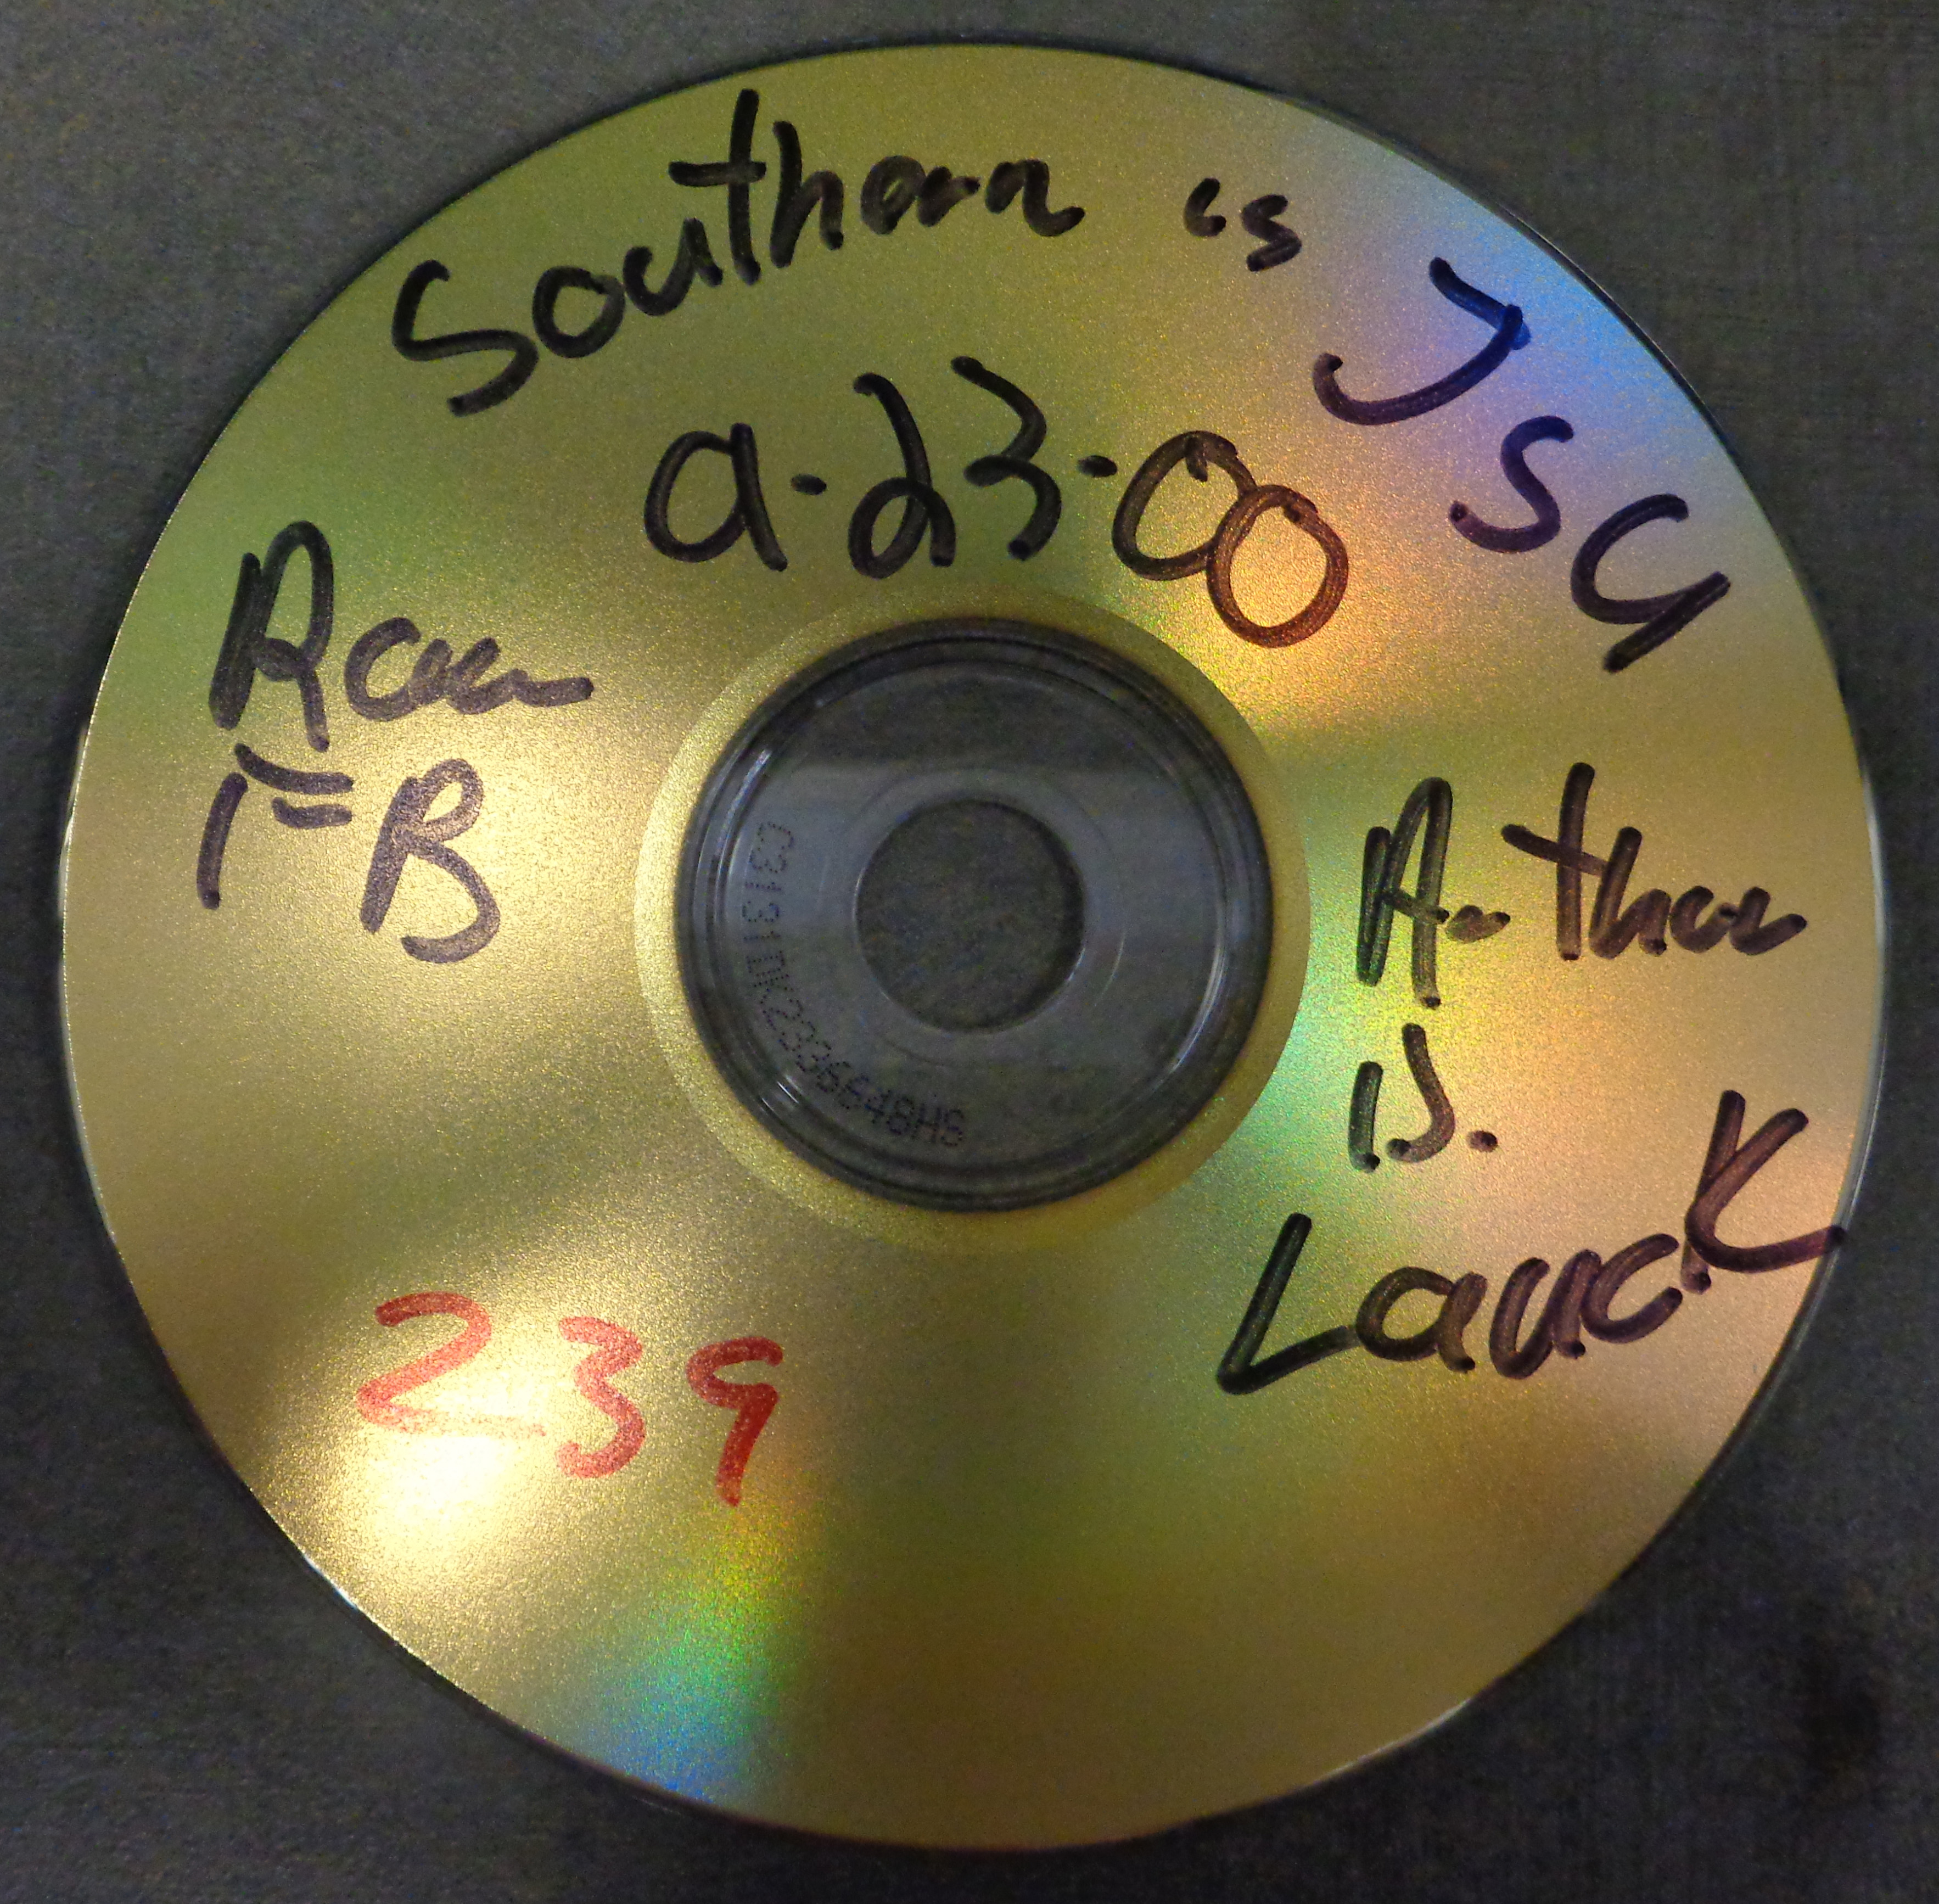 Southern vs JSU
9-23-00
Raw
FB
Arthur
B.
Lauck
239
G3131MK2336648HS